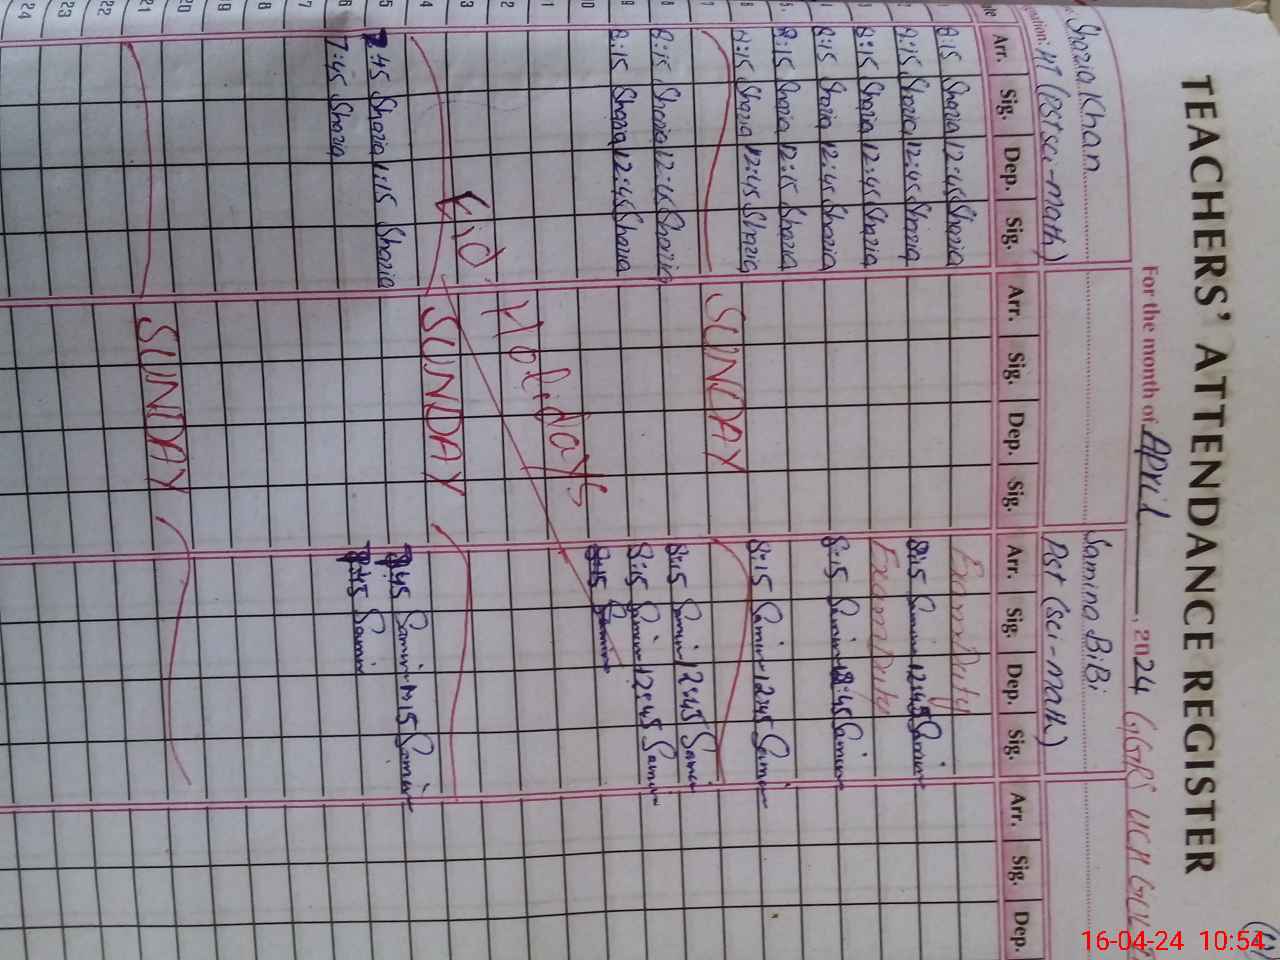 TEACHERS' ATTENDANCE REGISTER
For the month of April, 2024 GGPS UCH
Shazia Khan Samina BiBi
HT (Pst sci-math) Pst (sci-math)
Arr. Sig. Dep. Sig. Arr. Sig. Dep. Sig. Arr. Sig. Dep. Sig. Arr. Sig. Dep.
8:15 Shazia 12:45 Shazia Exam Duty
2 8:15 Shazia 12:45 Shazia 8:15 Samina 12:45 Samina
3 8:15 Shazia 12:45 Shazia Exam Duty
8:15 Shazia 12:45 Shazia 8:15 Samina 12:45 Samina
5 8:15 Shazia 12:15 Shazia
6 8:15 Shazia 12:45 Shazia 8:15 Samina 12:45 Samina
7 SUNDAY
8 8:15 Shazia 12:45 Shazia 8:15 Samina 12:45 Samina
9 8:15 Shazia 12:45 Shazia 8:15 Samina 12:45 Samina
10 8:15 Samina
Eid Holidays
14 SUNDAY
15 7:45 Shazia 1:15 Shazia 7:45 Samina 1:15 Samina
16 7:45 Shazia 7:45 Samina
17
18
19
20
21 SUNDAY
22
23
24
16-04-24 10:54